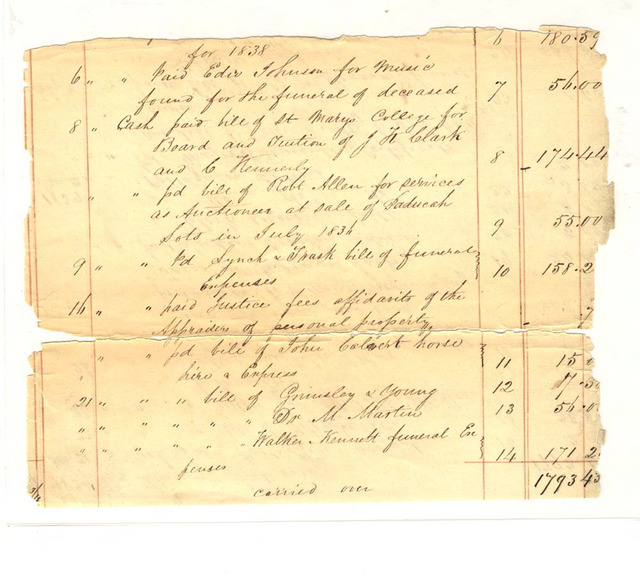 for 1838 6 180.59
6 " " Paid Edir Johnson for Music
found for the funeral of deceased 7 56.00
8 " Cash paid bill of St Marys College for
Board and Tuition of J K Clark
and C Kennerly 8 174.44
" " pd bill of Robt Allen for services
as Auctioneer at sale of Paducah
Lots in July 1836 9 55.00
9 " " Pd Lynch & Trask bill of funeral
Expenses 10 158.2
16 " " paid Justice fees affidavits of the
Appraisers of personal property
" " pd bill of John Calvert horse
hire & Express 11 15
21 " " " bill of Grimsley & Young 12 7.50
" " " " " Dr M Martin 13 56.0
" " " " " Walker Kennett funeral Ex
penses 14 171 2
carried over 1793 43